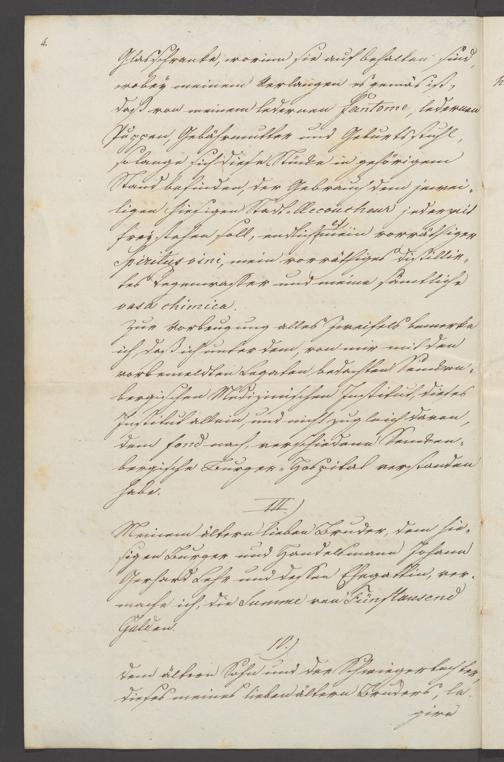 4.
Glasschranke, worinn sie aufbehalten sind,
wobey meinem Verlangen es gemäs ist,
daß von meinem ledernen Fantome, ledernen
Puppen, Gebährmutter und Geburtsstuhl,
solange sich diese Stücke in gehörigem
Stand befinden, der Gebrauch dem jewei-
ligen hiesigen Stadt-Accoucheur jederzeit
freystehen soll, endlich mein vorräthiger
Spiritus vini, mein vorräthiges distillir-
tes Regenwasser und meine sämtliche
vasa chimica.
Zur Vorbeugung alles Zweifels bemerke
ich, daß ich unter dem, von mir mit den
vorbemeldten Legaten bedachten Senken-
bergischen Medizinischen Institut, dieses
Institut allein, und nicht zugleich das,
dem fond nach verschiedene Senken-
bergische Bürger-Hospital verstanden
habe.
III.)
Meinem ältern lieben Bruder, dem hie-
sigen Burger und Handelsmann Johann
Gerhard Lehr und dessen Ehegattin, ver-
mache ich, die Summe von Fünftausend
Gulden.
IV.)
Dem ältern Sohn und der Schwiegertochter,
dieses meines lieben ältern Bruders, le-
gire